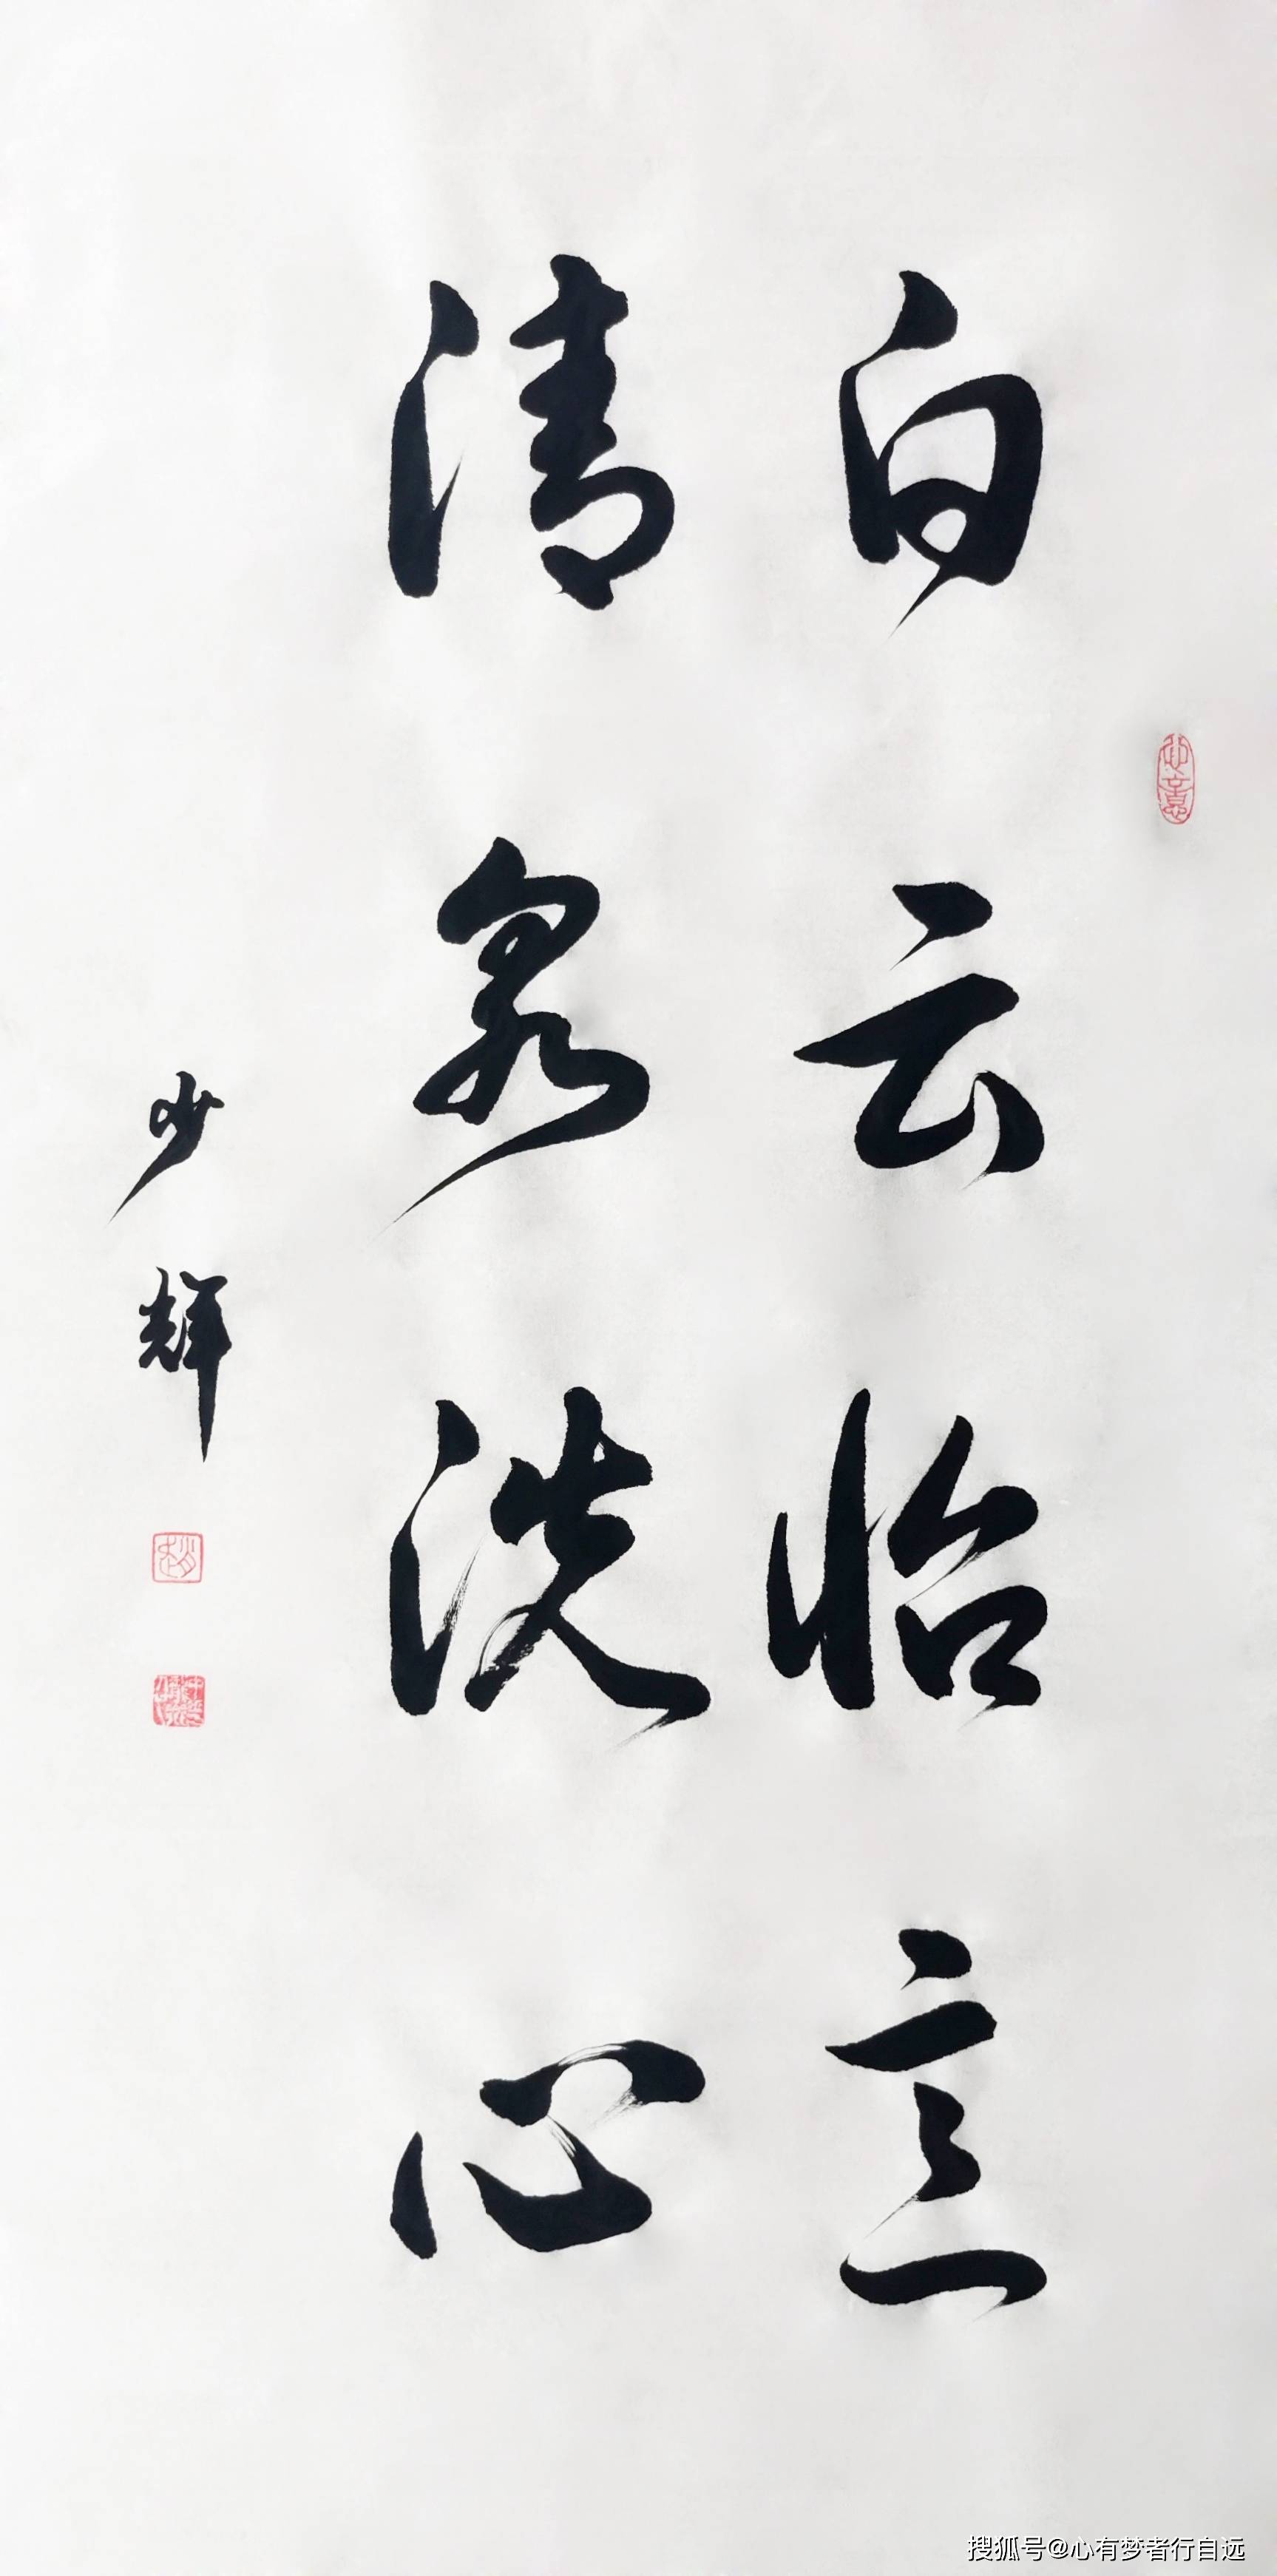 如意
白云怡意
清泉洗心
少辉
搜狐号@心有梦者行自远